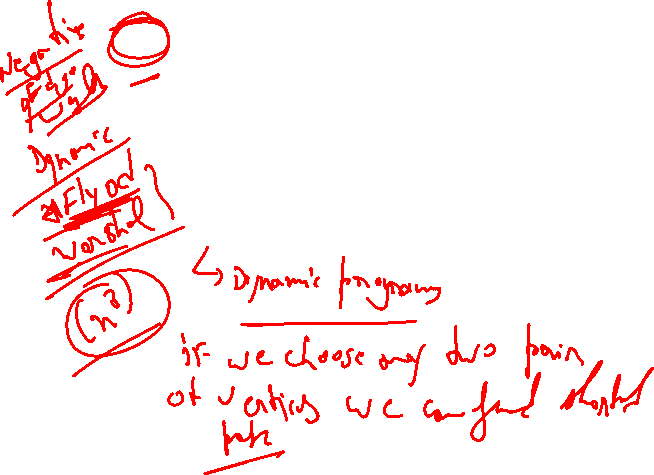 Negative
edge
Dynamic
Flyod
Warshal
(n³)
↳ Dynamic programs
if we choose any two pair
of vertices we can find shortest
path